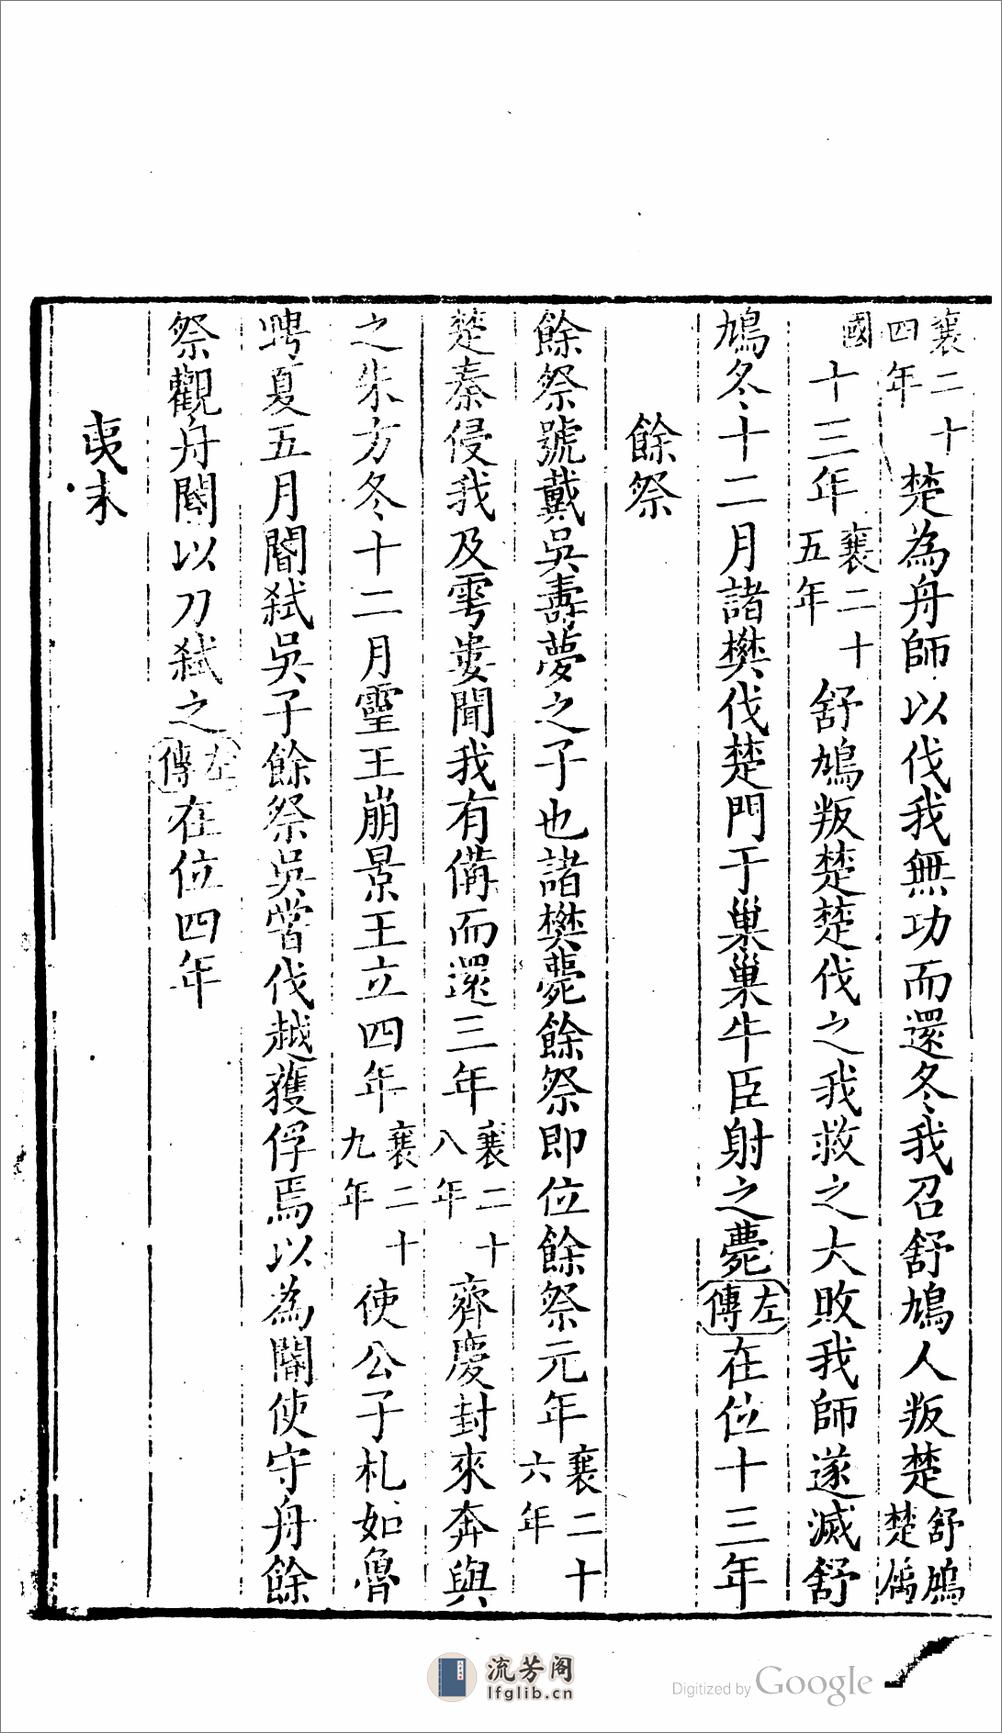 襄二十四年楚為舟師以伐我無功而還冬我召舒鳩人叛楚舒鳩楚屬
國十三年襄二十五年舒鳩叛楚楚伐之我救之大敗我師遂滅舒
鳩冬十二月諸樊伐楚門于巢巢牛臣射之薨左傳在位十三年
餘祭
餘祭號戴吳壽夢之子也諸樊薨餘祭即位餘祭元年襄二十六年
楚秦侵我及雩婁聞我有備而還三年襄二十八年齊慶封來奔與
之朱方冬十二月靈王崩景王立四年襄二十九年使公子札如魯
聘夏五月閽弒吳子餘祭吳嘗伐越獲俘焉以為閽使守舟餘
祭觀舟閽以刀弒之左傳在位四年
夷末
流芳阁
lfglib.cn
Digitized by Google